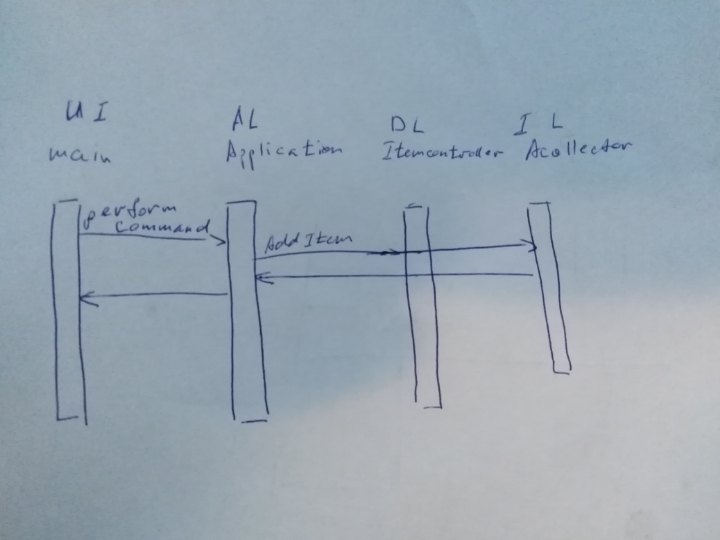 UI AL DL IL
main Application Itemcontroller Acollector
perform
command
Add Item